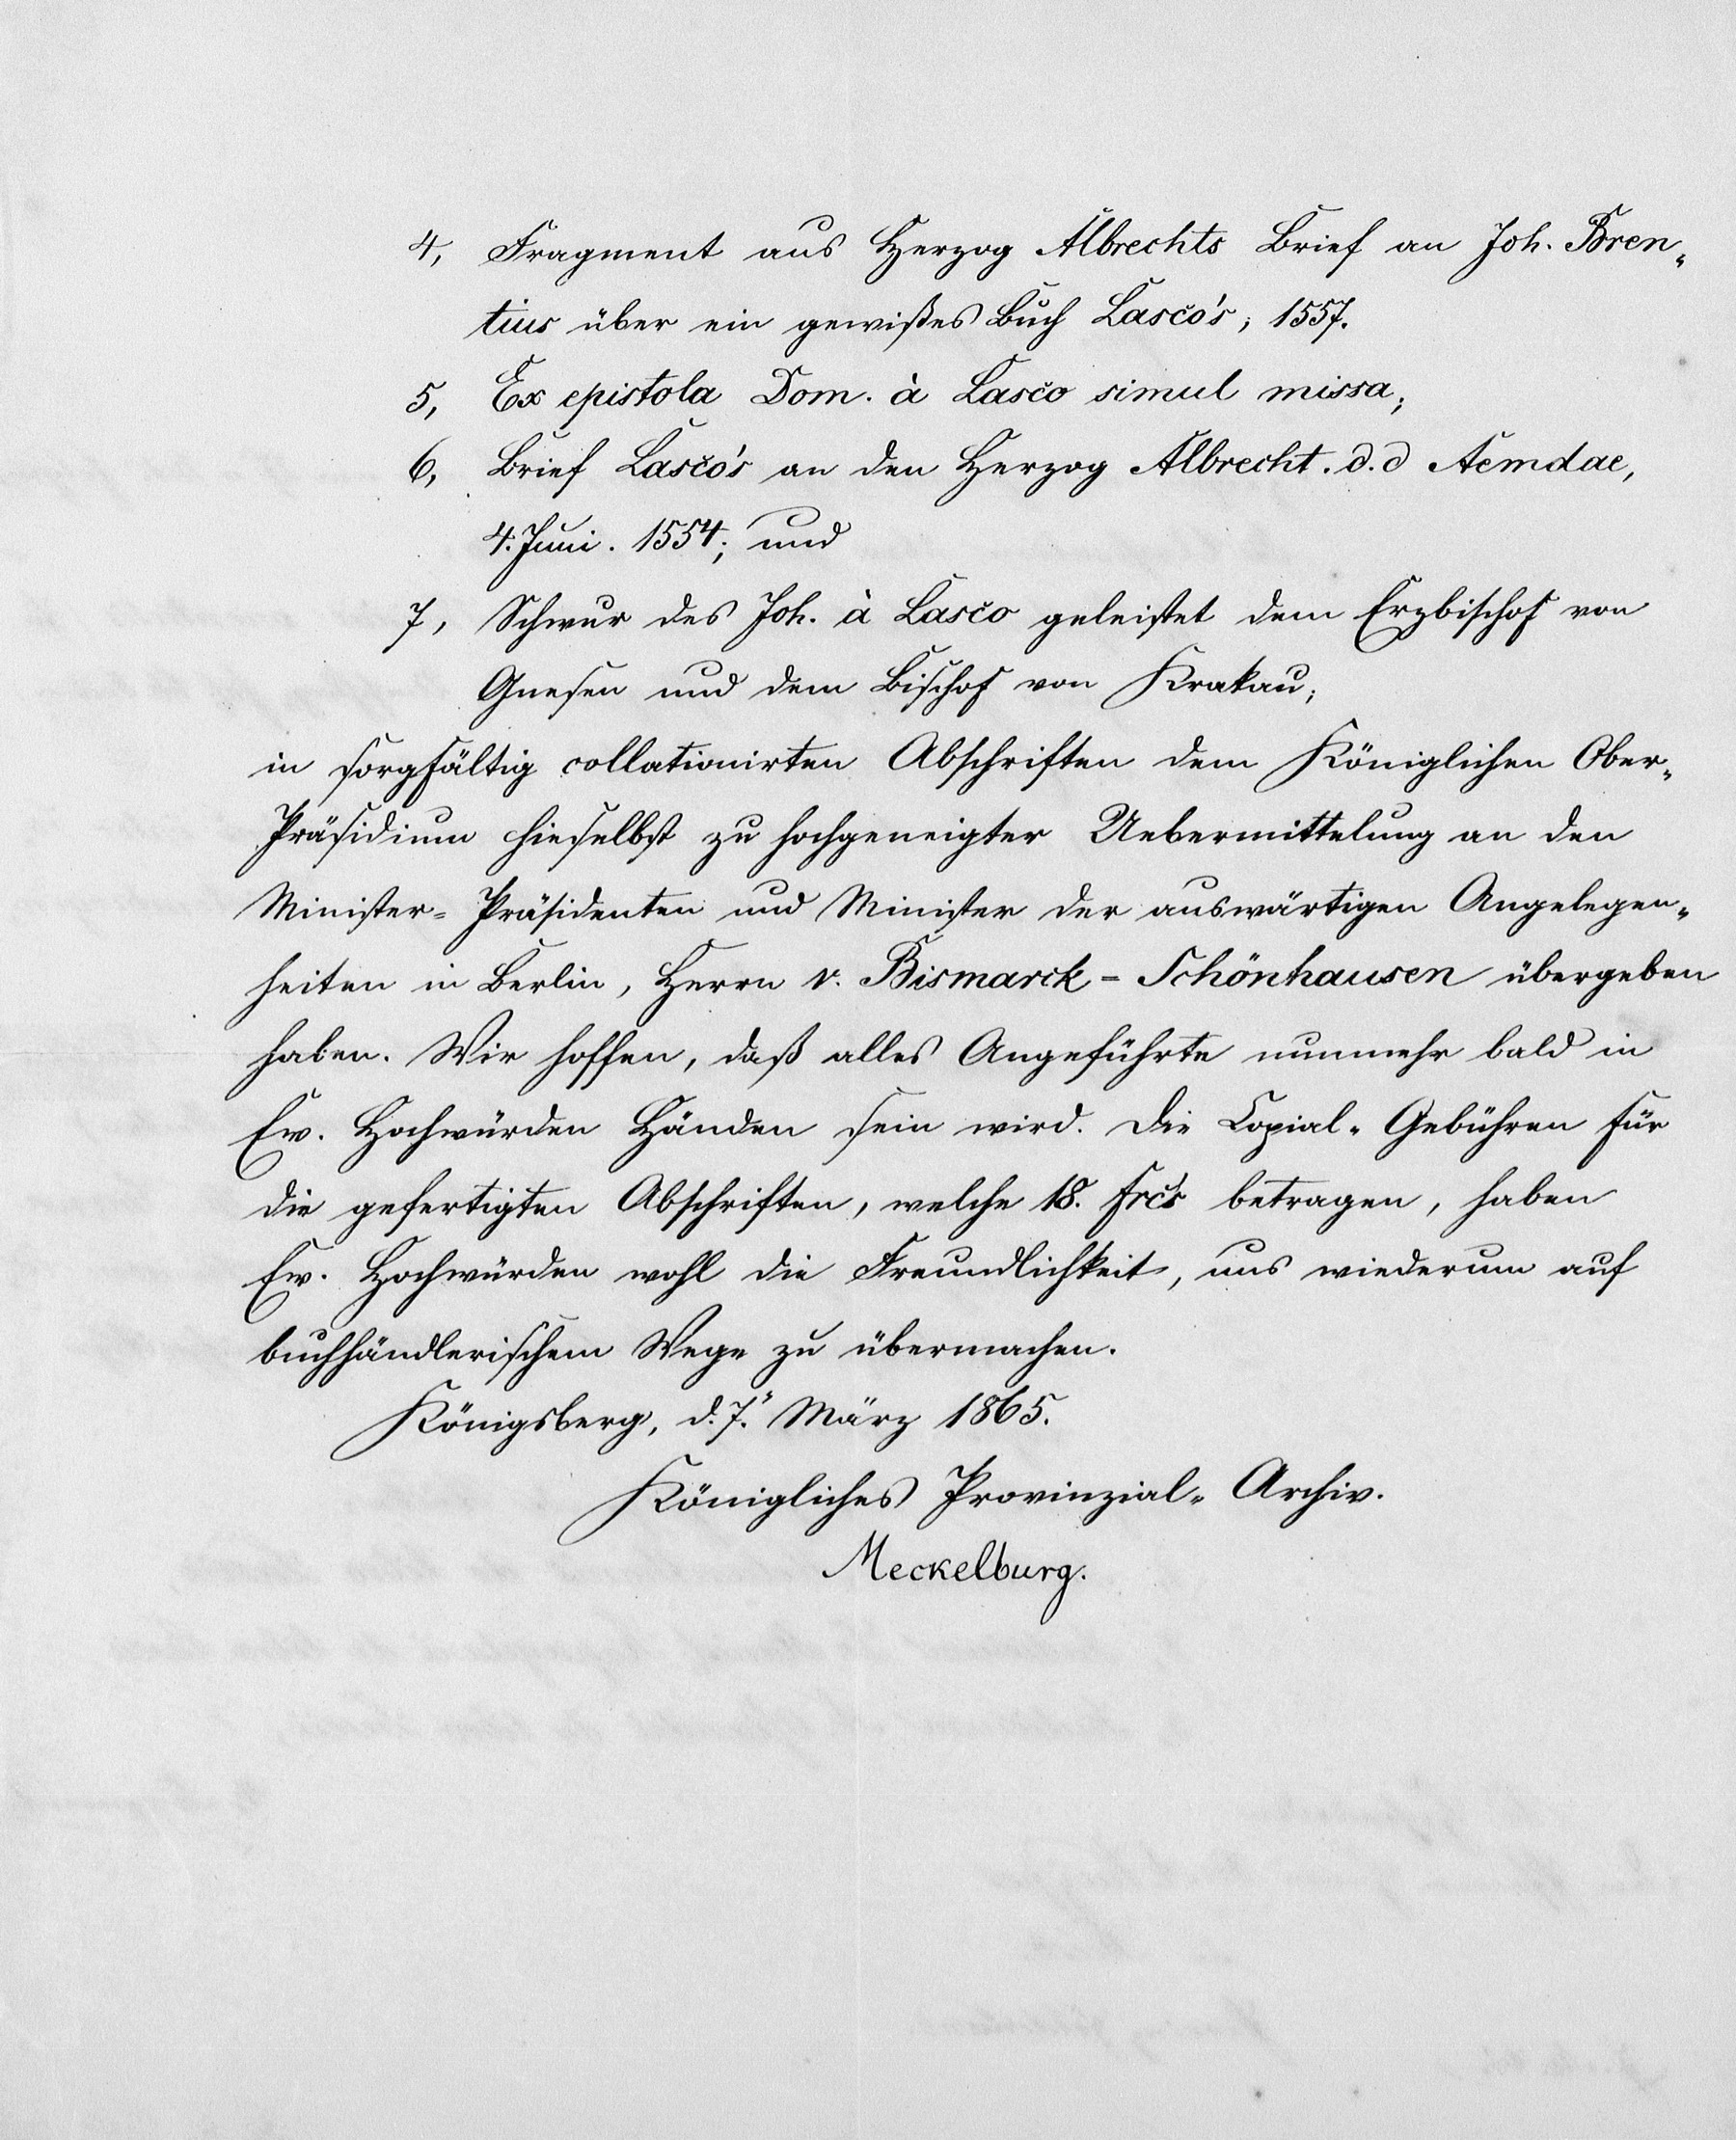 4, Fragment aus Herzog Albrechts Brief an Joh. Bren„
tius über ein gewißes Buch Lasco's; 1557.
5, Ex epistola Dom. à Lasco simul missa;
6, Brief Lasco's an den Herzog Albrecht. d. d Aemdae,
4. Juni. 1554; und
7, Schwur des Joh. à Lasco geleistet dem Erzbischof von
Gnesen und dem Bischof von Krakau;
in sorgfältig collationirten Abschriften dem Königlichen Ober„
Präsidium hieselbst zu hochgeneigter Uebermittelung an den
Minister= Präsidenten und Minister der auswärtigen Angelegen„
heiten in Berlin, Herrn v. Bismarck = Schönhausen übergeben
haben. Wir hoffen, daß alles Angeführte nunmehr bald in
Ew. Hochwürden Händen sein wird. Die Copial„ Gebühren für
die gefertigten Abschriften, welche 18. frcs betragen, haben
Ew. Hochwürden wohl die Freundlichkeit, uns wiederum auf
buchhändlerischem Wege zu übermachen.
Königsberg, d. 7. März 1865.
Königliches Provinzial„ Archiv.
Meckelburg.